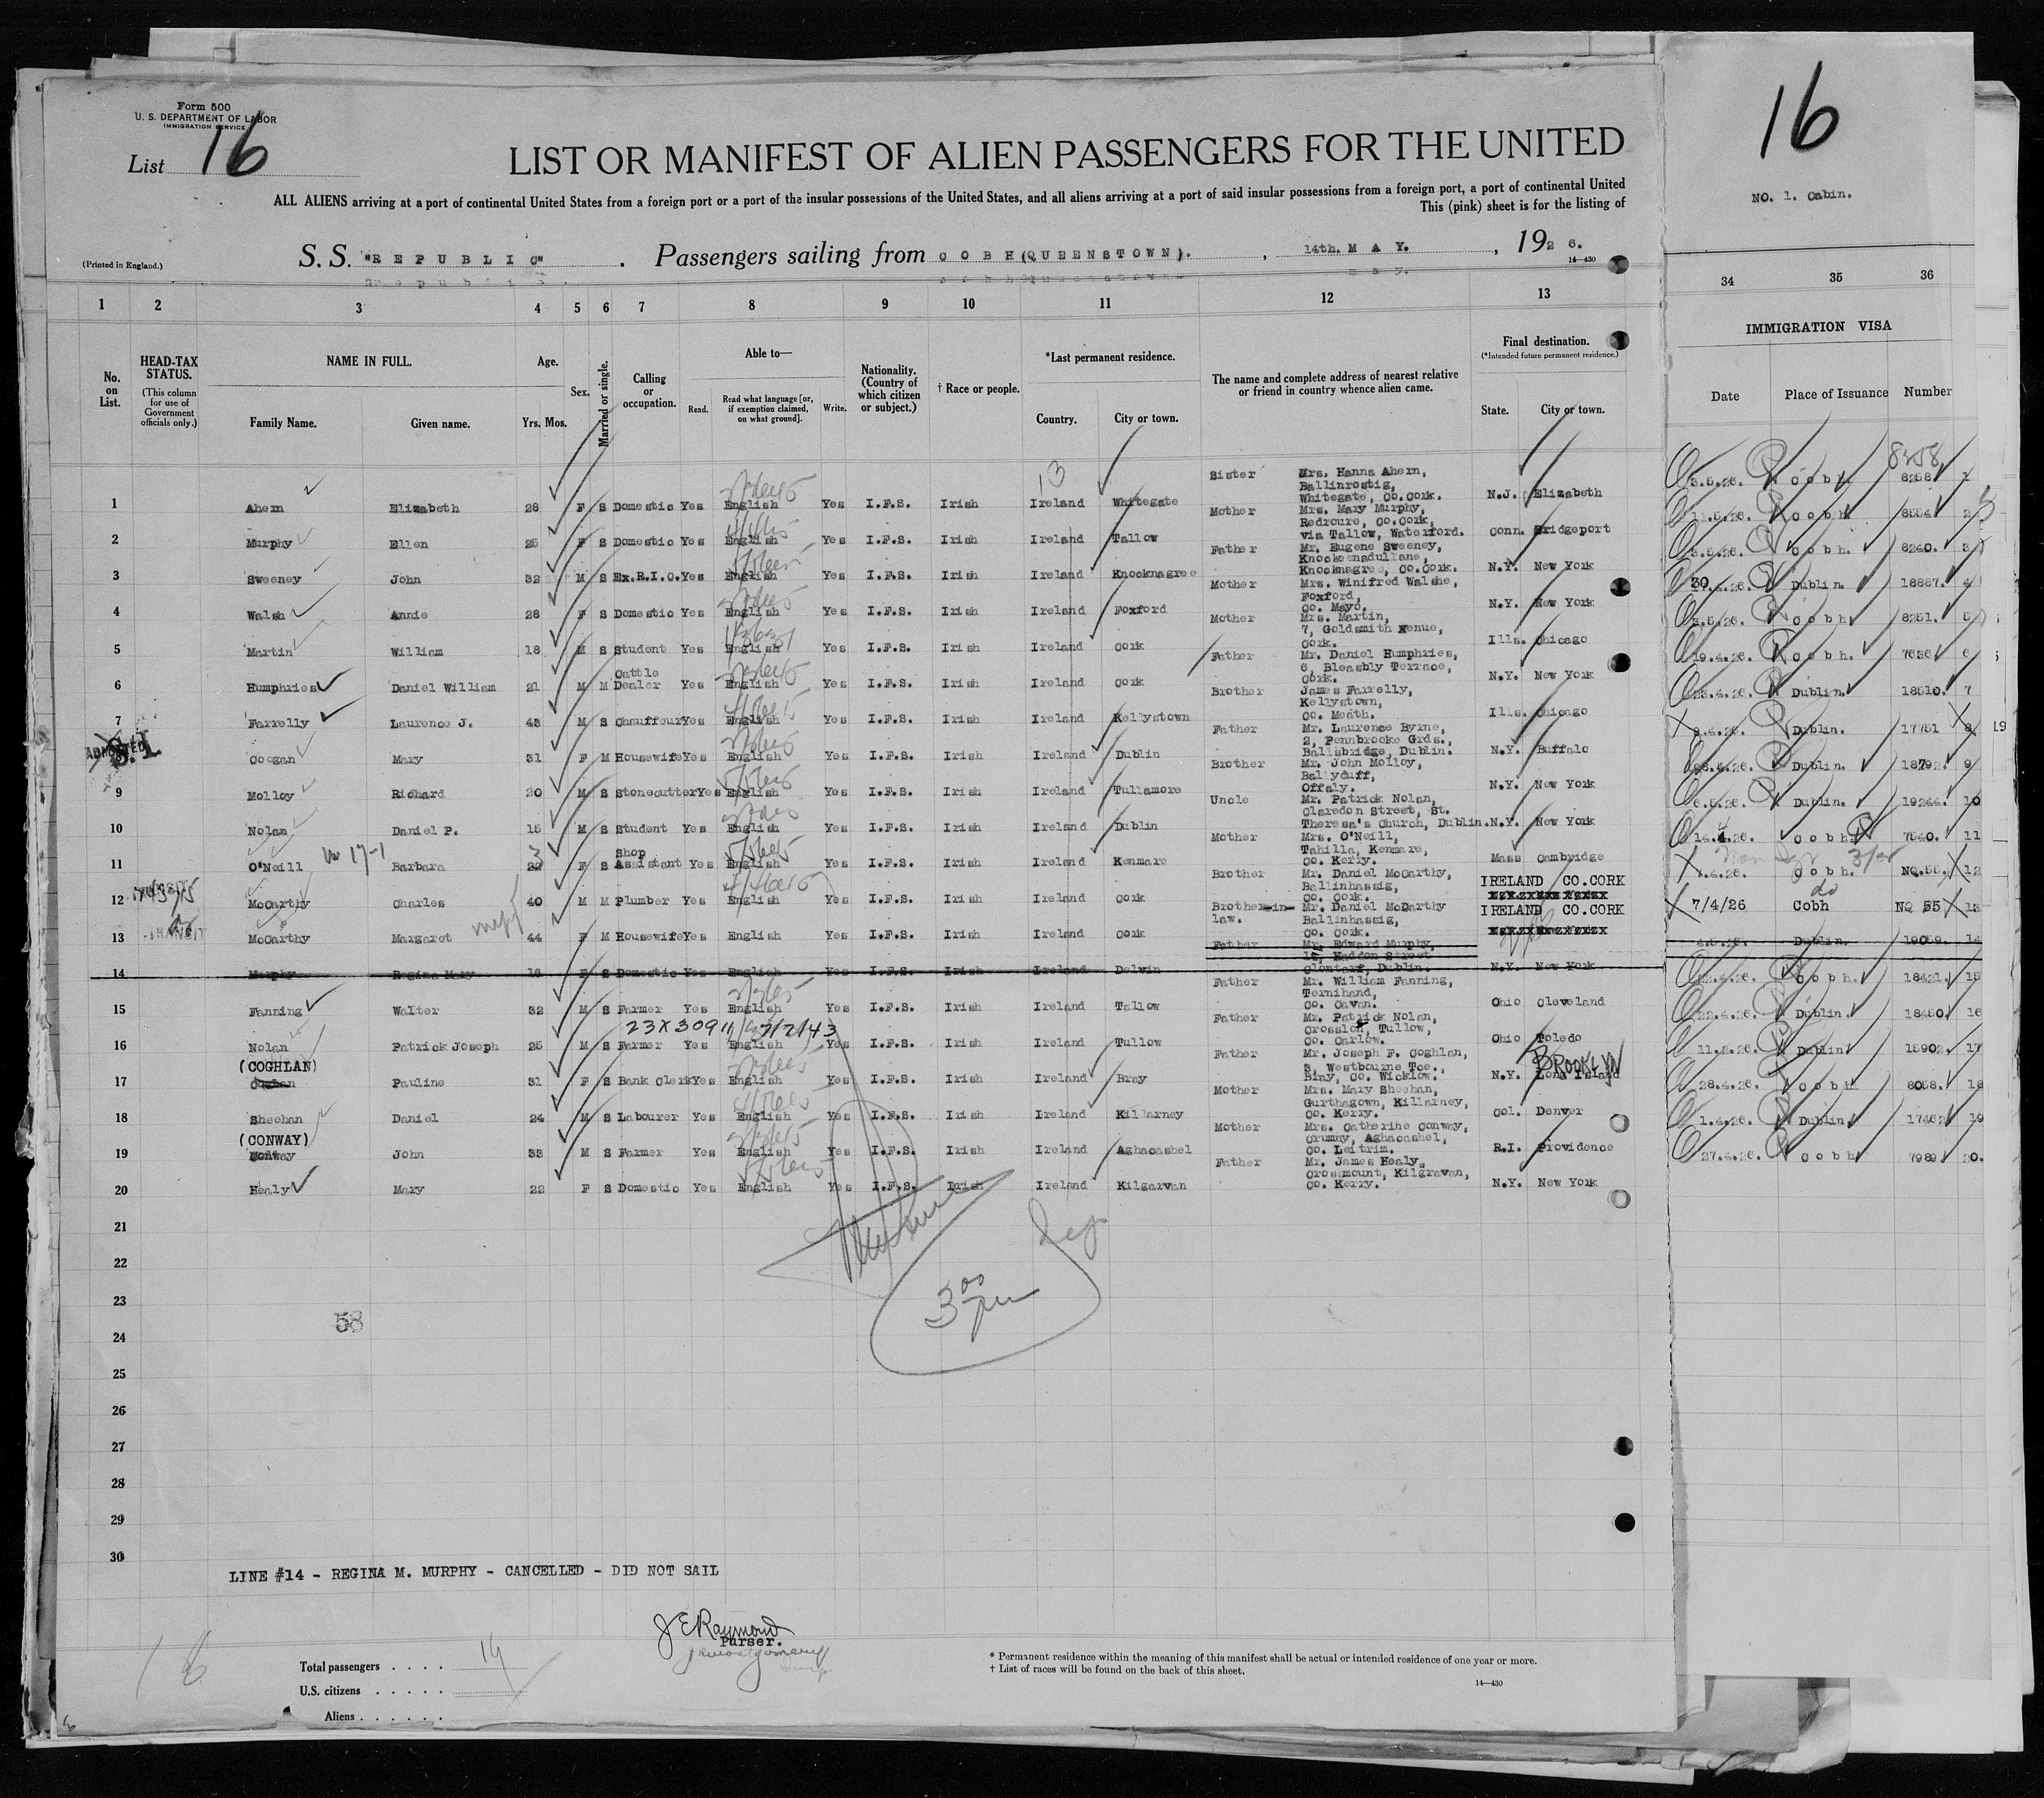 Form 500
U. S. DEPARTMENT OF LABOR
IMMIGRATION SERVICE
List 16
16
NO. 1. Cabin.
LIST OR MANIFEST OF ALIEN PASSENGERS FOR THE UNITED
ALL ALIENS arriving at a port of continental United States from a foreign port or a port of the insular possessions of the United States, and all aliens arriving at a port of said insular possessions from a foreign port, a port of continental United
This (pink) sheet is for the listing of
(Printed in England.)
S. S. "REPUBLIC". Passengers sailing from COBH(QUEENSTOWN)., 14th. MAY., 1926.
14—430
1 2 3 4 5 6 7 8 9 10 11 12 13 34 35 36
No. on List.
HEAD-TAX STATUS.
(This column for use of Government officials only.)
NAME IN FULL.
Family Name. Given name.
Age.
Yrs. Mos.
Sex.
Married or single.
Calling or occupation.
Able to—
Read. Read what language [or, if exemption claimed, on what ground]. Write.
Nationality. (Country of which citizen or subject.)
† Race or people.
*Last permanent residence.
Country. City or town.
The name and complete address of nearest relative or friend in country whence alien came.
Final destination.
(*Intended future permanent residence.)
State. City or town.
IMMIGRATION VISA
Date Place of Issuance Number
13
8258
1 Ahern Elizabeth 28 F S Domestic Yes English Yes I.F.S. Irish Ireland Whitegate Sister Mrs. Hanna Ahern, Ballinrostig, Whitegate, Co.Cork. N.J. Elizabeth 3.5.26. Cobh 8258 1
2 Murphy Ellen 25 F S Domestic Yes English Yes I.F.S. Irish Ireland Tallow Mother Mrs. Mary Murphy, Redroure, Co.Cork, via Tallow, Waterford. Conn. Bridgeport 11.5.26. Cobh 8554 2
3 Sweeney John 32 M S Ex.R.I.C. Yes English Yes I.F.S. Irish Ireland Knocknagree Father Mr. Eugene Sweeney, Knockeenadullane, Knocknagree, Co.Cork. N.Y. New York 3.5.26. Cobh. 8240. 3
4 Walsh Annie 28 F S Domestic Yes English Yes I.F.S. Irish Ireland Foxford Mother Mrs. Winifred Walshe, Foxford, Co. Mayo. N.Y. New York 30.4.26. Dublin. 18887. 4
5 Martin William 18 M S Student Yes English Yes I.F.S. Irish Ireland Cork Mother Mrs. Martin, 7, Goldsmith Venue, Cork. Ills. Chicago 3.5.26. Cobh 8251. 5
6 Humphries Daniel William 21 M M Cattle Dealer Yes English Yes I.F.S. Irish Ireland Cork Father Mr. Daniel Humphries, 6, Bleasbly Terrace, Cork. N.Y. New York 19.4.26. Cobh. 7636 6
7 Farrelly Laurence J. 43 M S Chauffeur Yes English Yes I.F.S. Irish Ireland Kellystown Brother James Farrelly, Kellystown, Co. Meath. Ills. Chicago 23.4.26. Dublin. 18510. 7
ADMITTED S.I. Coogan Mary 31 F M Housewife Yes English Yes I.F.S. Irish Ireland Dublin Father Mr. Laurence Byrne, 2, Pennbrooke Grds., Ballsbridge, Dublin. N.Y. Buffalo 9.4.26. Dublin. 17751 8
9 Molloy Richard 20 M S Stonecutter Yes English Yes I.F.S. Irish Ireland Tullamore Brother Mr. John Molloy, Ballyduff, Offaly. N.Y. New York 28.4.26. Dublin. 18792. 9
10 Nolan Daniel P. 15 M S Student Yes English Yes I.F.S. Irish Ireland Dublin Uncle Mr. Patrick Nolan, Claredon Street, St. Theresa's Church, Dublin. N.Y. New York 6.5.26. Dublin. 19244. 10
11 O'Neill Barbara 22 F S Shop Assistant Yes English Yes I.F.S. Irish Ireland Kenmare Mother Mrs. O'Neill, Tahilla, Kenmare, Co. Kerry. Mass Cambridge 14.4.26. Cobh 7540. 11
12 McCarthy Charles 40 M M Plumber Yes English Yes I.F.S. Irish Ireland Cork Brother Mr. Daniel McCarthy, Ballinhassig, Co. Cork. IRELAND CO.CORK 7.4.26. Cobh. NO.55. 12
TRANSIT
13 McCarthy Margaret 44 F M Housewife Yes English Yes I.F.S. Irish Ireland Cork Brother-in-law. Mr. Daniel McCarthy Ballinhassig, Co. Cork. IRELAND CO.CORK 7/4/26 Cobh NO 55 13
14 Murphy Regina Mary 18 F S Domestic Yes English Yes I.F.S. Irish Ireland Delvin Father Mr. Edward Murphy, 14, Haddon Street Clontarf, Dublin. N.Y. New York Dublin. 19059. 14
15 Fanning Walter 32 M S Farmer Yes English Yes I.F.S. Irish Ireland Tallow Father Mr. William Fanning, Ternihand, Co. Cavan. Ohio Cleveland Cobh. 18421. 15
23X30911 7/2/43
16 Nolan Patrick Joseph 25 M S Farmer Yes English Yes I.F.S. Irish Ireland Tullow Father Mr. Patrick Nolan, Crosslow, Tullow, Co. Carlow. Ohio Toledo 22.4.26. Dublin. 18450. 16
(COGHLAN)
17 Pauline 31 F S Bank Clerk Yes English Yes I.F.S. Irish Ireland Bray Father Mr. Joseph F. Coghlan, 3, Westbourne Tce., Bray, Co. Wicklow. N.Y. BROOKLYN Long Island 11.3.26. Dublin 15902. 17
18 Sheehan Daniel 24 M S Labourer Yes English Yes I.F.S. Irish Ireland Killarney Mother Mrs. Mary Sheehan, Gurthagown, Killarney, Co. Kerry. Col. Denver 28.4.26. Cobh 8058. 18
(CONWAY)
19 John 33 M S Farmer Yes English Yes I.F.S. Irish Ireland Aghacashel Mother Mrs. Catherine Conway, Crummy, Aghacashel, Co. Leitrim. R.I. Providence 1.4.26. Dublin. 17462 19
20 Healy Mary 22 F S Domestic Yes English Yes I.F.S. Irish Ireland Kilgarvan Father Mr. James Healy, Crossmount, Kilgravan, Co. Kerry. N.Y. New York 27.4.26. Cobh 7989. 20.
21
22
23
300 pm
58
24
25
26
27
28
29
30
LINE #14 - REGINA M. MURPHY - CANCELLED - DID NOT SAIL
J E Raymond
Purser.
16
Total passengers . . . . 19
U.S. citizens . . . . .
Aliens . . . . . .
* Permanent residence within the meaning of this manifest shall be actual or intended residence of one year or more.
† List of races will be found on the back of this sheet.
14—430